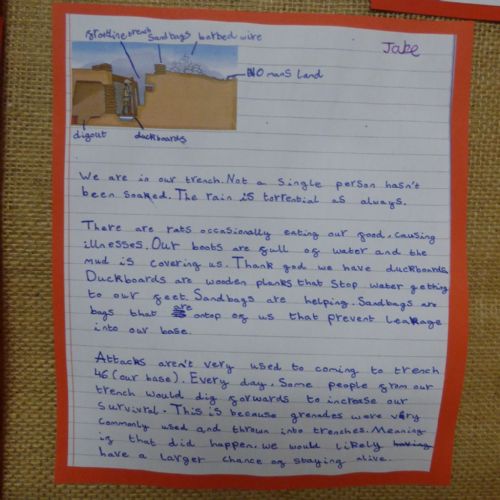 frontline trench
sandbags barbed wire
Jake
NO mans land
digout duckboards
We are in our trench. Not a single person hasn't
been soaked. The rain is torrential as always.
There are rats occasionally eating our food, causing
illnesses. Our boots are full of water and the
mud is covering us. Thank god we have duckboards.
Duckboards are wooden planks that stop water getting
to our feet. Sandbags are helping. Sandbags are
bags that are ontop of us that prevent leakage
into our base.
Attacks aren't very used to coming to trench
46 (our base). Every day, Some people from our
trench would dig forwards to increase our
survivral. This is because grenades were very
commonly used and thrown into trenches. Meaning
if that did happen, we would likely having
have a larger chance of staying alive.